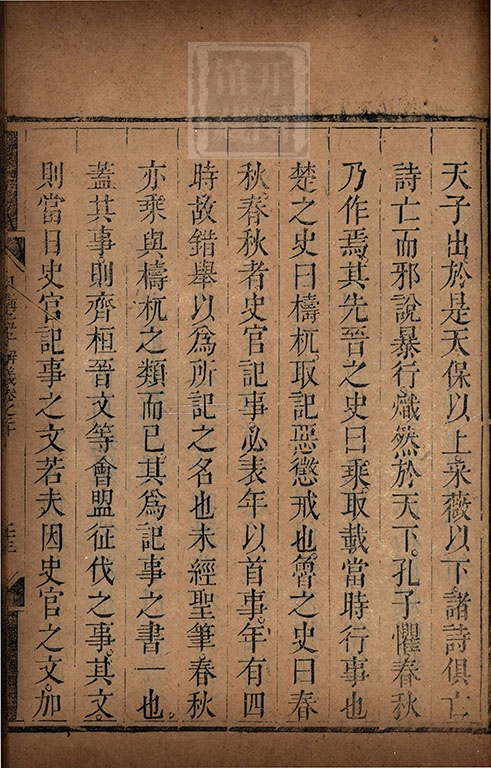 天子出於是天保以上采薇以下諸詩俱亡
詩亡而邪說暴行熾然於天下。孔子懼春秋
乃作焉。其先晉之史曰乘。取載當時行事也
楚之史曰檮杌。取記惡懲戒也。魯之史曰春
秋。春秋者史官記事。必表年以首事。年有四
時故錯舉以為所記之名也未經聖筆春秋
亦乘與檮杌之類而已。其為記事之書一也。
蓋其事則齊桓晉文等會盟征伐之事。其文。
則當日史官記事之文若夫因史官之文。加